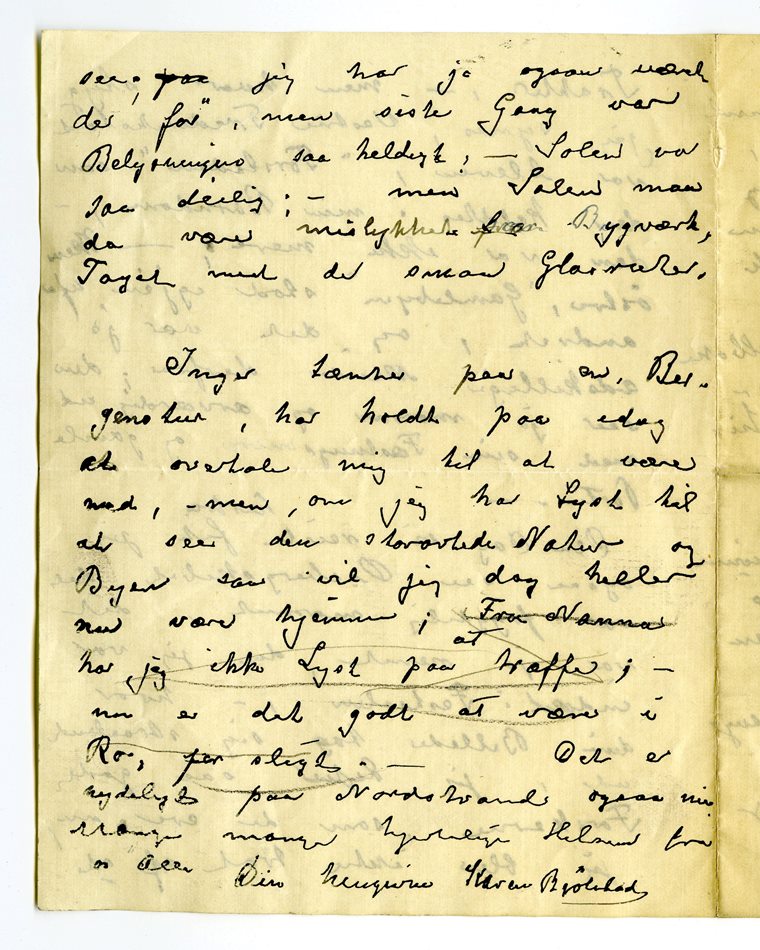 see, paa jeg har jo ogsaa været
der før", men siste Gang var
Belysningens saa heldigt; – Solen va
saa deilig; – men Salen maa
da være mislykket Bygværk,
Taget med de smaa Glasruder.
Inger tænker paa en Ber-
genstur, har holdt paa idag
at overtale mig til at være
med, – men, om jeg har Lyst til
at seer den storartede Natur og
Byen saa vil jeg dog heller
nu være hjemme; Fru Nanna
at
har jeg ikke Lyst paa træffe; –
nu er det godt at være i
Ro, for sligt. – Det er
nydeligt paa Nordstrand ogsaa nu
Mange mange hjertelige Hilsner fra
os Alle Din hengivne Karen Bjølstad